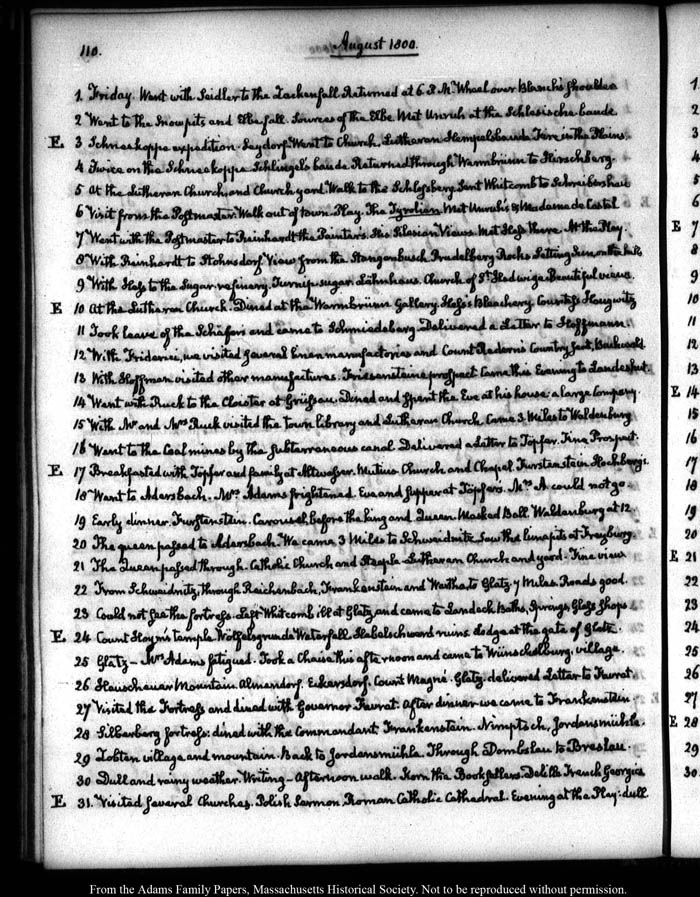 110.
August 1800.
1. Friday. Went with Seidler to the Zackenfall Returned at 6 P.M. Wheel over Blanch's shoulder
2 Went to the Snowpits and Elbefall. Sources of the Elbe Met Unruh at the Schlesische baude
E. 3 Schneekoppe expedition. Seydorf Went to Church. Lutheran Hempelsbaude Fire in the Plains.
4 Twice on the Schneekoppe. Schlingel's baude Returned through Warmbrünn to Hirschberg.
5 At the Lutheran Church and Church yard. Walk to the Schlossberg. Sent Whitcomb to Schreibershau
6 Visit from the Postmaster. Walk out of town. Play. The Tyrolien. Met Unruh's & Madame de Castel
7 Went with the Postmaster to Reinhardt the Painter's. His Silesian Views. Met Hess there. At the Play.
8 With Reinhardt to Stohnsdorf. View from the Stangenbusch. Prudelberg Rocks Setting Sun on the hills
9 With Hess to the Sugar refinery. Turnip sugar. Lähnhaus. Church of St. Hedwige Beautiful views.
E 10 At the Lutheran Church. Dined at the Warmbrünn Gallery. Hess's Bleachery. Countess Haugwitz
11 Took leave of the Schäfers and came to Schmiedeberg. Delivered a Letter to Hoffmann
12 With Friderici, we visited several linen manufactories and Count Redern's Country seat, Buchwald
13 With Hoffman visited other manufactures. Friesensteine prospect Came this Evening to Landeshut
14 Went with Ruck to the Cloister at Grüssau. Dined and spent the Eve at his house: a large Company.
15 With Mr and Mrs Ruck visited the town library and Lutheran Church. Came 3 Miles to Waldenburg
16 Went to the Coal mines by the subterraneous canal Delivered a Letter to Töpfer. Fine Prospect.
E. 17 Breakfasted with Töpfer and family at Altwasser. Mutius. Church and Chapel. Furstenstein. Hochberg's
18 Went to Adersbach. Mrs Adams frightened. Eve and supper at Töpfer's. Mrs A. could not go
19 Early dinner. Furstenstein. Carousel, before the king and Queen. Masked Ball. Waldenburg at 12.
20 The queen passed to Adersbach. We came 3 Miles to Schweidnitz, Saw the limepits at Freyburg.
21 The Queen passed through. Catholic Church and Steeple. Lutheran Church and yard. Fine view
22 From Schweidnitz, through Reichenbach, Frankenstein and Wartha to Glatz. 7 Miles. Roads good.
23 Could not see the fortress. Left Whitcomb ill at Glatz and came to Landeck Baths, Springs, Glass Shops
E. 24 Count Hoym's temple. Wölfelsgrunde Waterfall. Habelschwerd ruins. Lodge at the gate of Glatz.
25 Glatz - Mrs Adams fatigued. Took a Chaise this afternoon and came to Wünschelburg. village.
26 Heuscheuer Mountain. Almendorf. Eckersdorf. Count Magni. Glatz. delivered Letter to Favrat
27 Visited the Fortress and dined with Governor Favrat. After dinner we came to Frankenstein
28 Silberberg fortress: dined with the Commandant. Frankenstein. Nimptsch, Jordansmühle.
29 Zobten village and mountain. Back to Jordansmühle. Through Domslau to Breslau.
30 Dull and rainy weather. Writing - Afternoon walk. Korn the Book sellers. Delille French Georgics
E 31. Visited several Churches. Polish Sermon, Roman Catholic Cathedral. Evening at the Play: dull
From the Adams Family Papers, Massachusetts Historical Society. Not to be reproduced without permission.